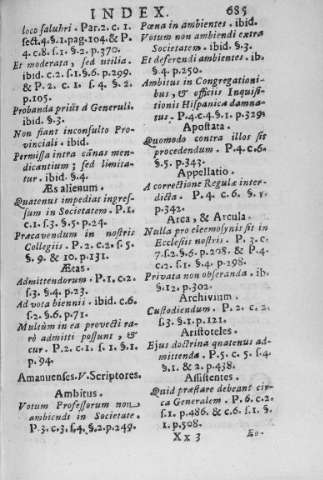 INDEX. 685
loco salubri. Par.2. c.1.
sect.4.§.1.pag.104.& P.
4. c.8. s.1. §.2. p.370.
Et moderata, sed utilia.
ibid. c.2. s.1.§.6. p.299.
& P.2. c.1. s.4. §.2.
p.105.
Probanda priùs à Generali.
ibid. §.3.
Non fiant inconsulto Pro-
vinciali. ibid.
Permissa intra cænas men-
dicantium; sed limita-
tur. ibid. §.4.
Æs alienum.
Quatenus impediat ingres-
sum in Societatem. P.1.
c.1. s.3. §.5. p.24.
Præcavendum in nostris
Collegiis. P.2. c.2. s.5.
§.9. & 10. p.131.
Ætas.
Admittendorum. P.1. c.2.
s.3. §.4. p.23.
Ad vota biennii. ibid. c.6.
s.2. §.6. p.71.
Multùm in ea provecti ra-
rò admitti possunt, &
cur. P.2. c.1. s.1. §.1.
p.94.
Amanuenses. V. Scriptores.
Ambitus.
Votum Professorum non
ambiendi in Societate.
P.3. c.3. s.4. §.2. p.249.
Pœna in ambientes. ibid.
Votum non ambiendi extra
Societatem. ibid. §.3.
Et deferendi ambientes. ib.
§.4. p.250.
Ambitus in Congregationi-
bus, & officiis Inquisi-
tionis Hispanicæ damna-
tus. P.4.c.4.§.1. p.329.
Apostata.
Quomodo contra illos sit
procedendum. P.4. c.6.
§.5. p.343.
Appellatio.
A correctione Regulæ inter-
dicta. P.4. c.6. §.
p.342.
Arca, & Arcula.
Nulla pro eleemosynis sit in
Ecclesiis nostris. P.3. c.
7.s.2. §.6. p.208. & P.4.
c.2. s.1. §.4. p.298.
Privata non obseranda. ib.
§.12. p.302.
Archivium.
Custodiendum. P.2. c.2.
s.3. §.1. p.121.
Aristoteles.
Ejus doctrina quatenus ad-
mittenda. P.5. c.5. s.4.
§.1. & 2. p.438.
Assistentes.
Quid præstare debeant cir-
ca Generalem. P.6. c.2.
s.1. p.486. & c.6. s.1. §.
1. p.508.
Xx 3 Eo-